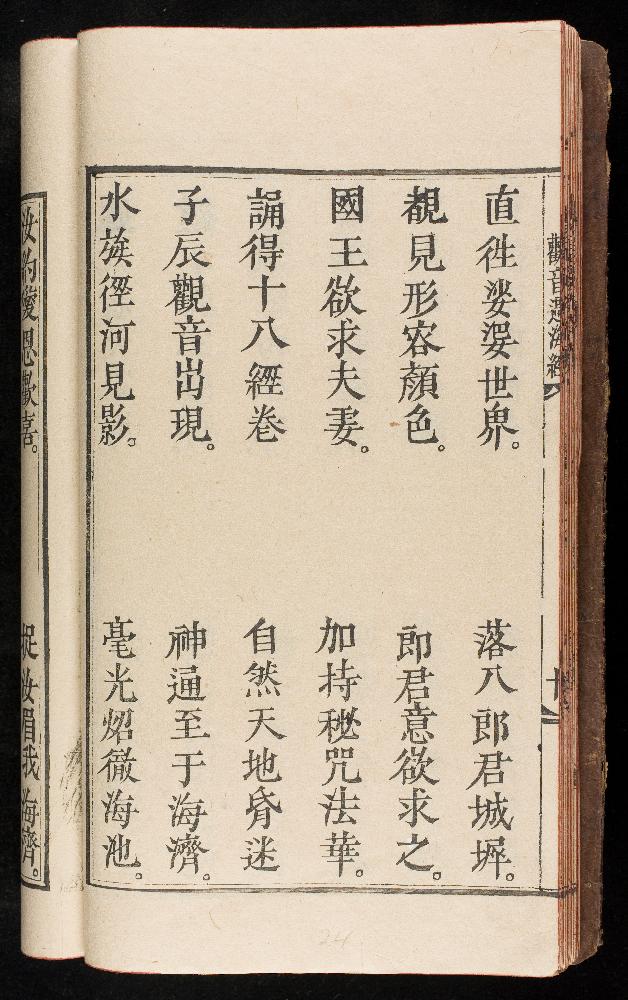 直徃娑婆世界。
落八郎君城墀。
覩見形容顔色。
郎君意欲求之。
國王欲求夫妻。
加持秘咒法華。
誦得十八經卷
自然天地昏迷
子辰觀音出現。
神通至于海濟。
水族徑河見影。
毫光炤徹海池。
恩歡喜。
捉汝眉我海濟。